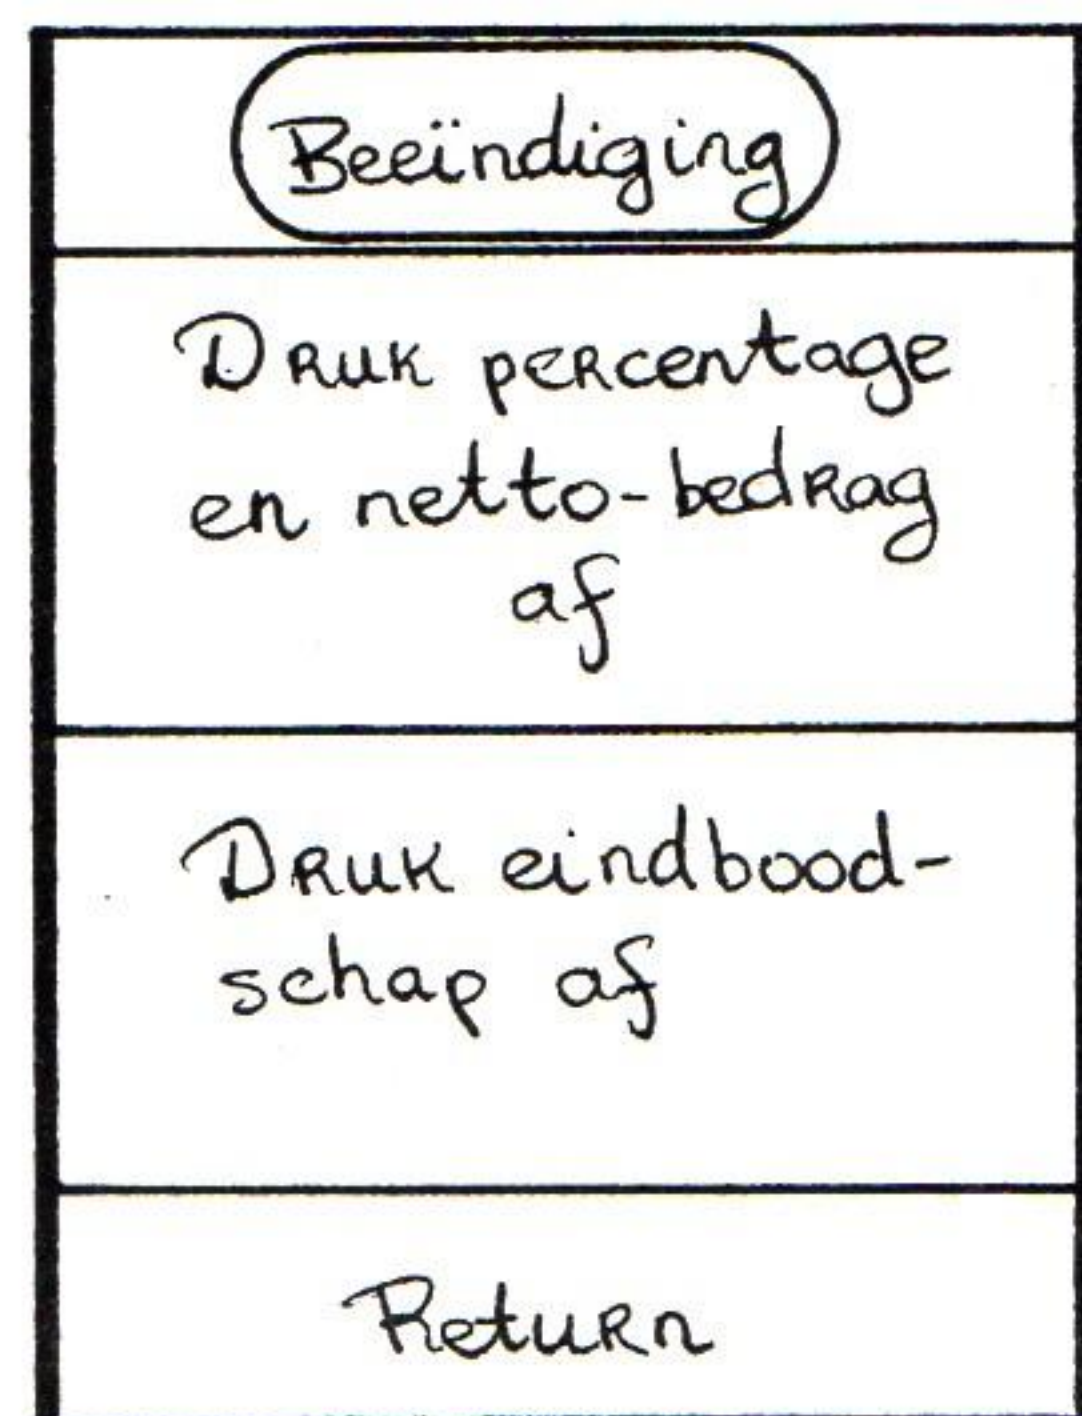 Beeïndiging
Druk percentage
en netto-bedrag
af
Druk eindbood-
schap af
Return